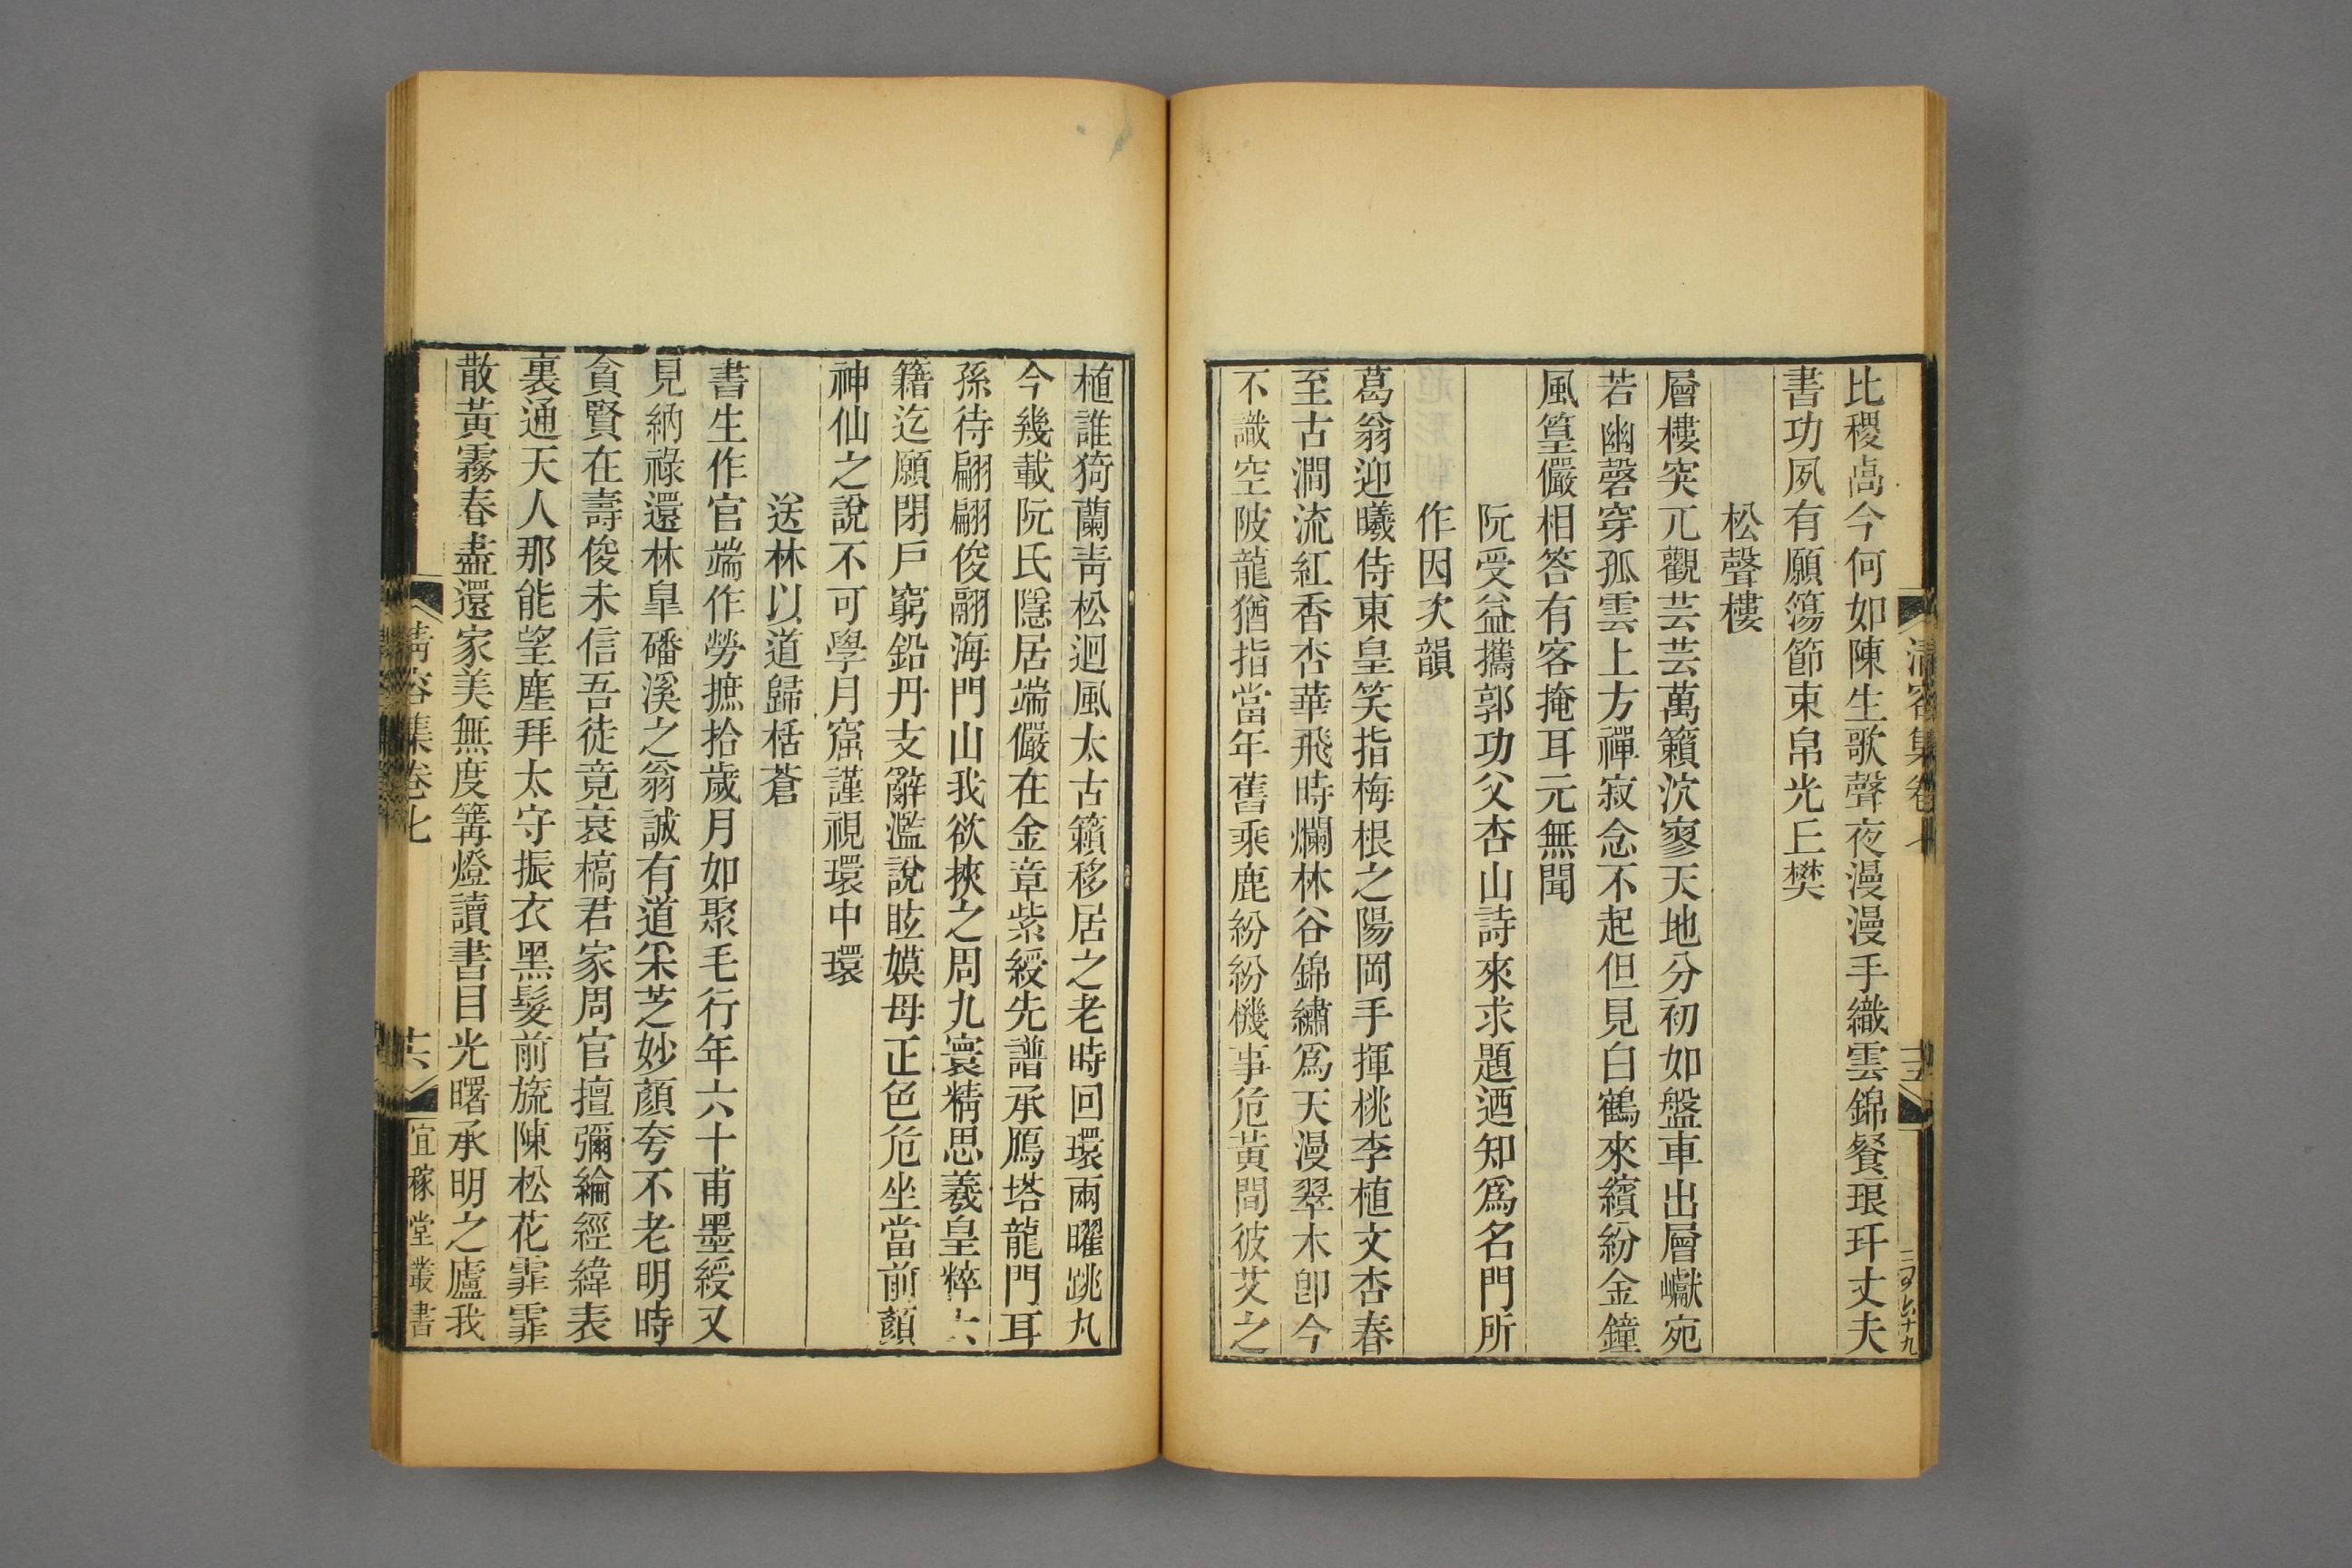 清容集卷七
比稷卨今何如陳生歌聲夜漫漫手織雲錦餐琅玕丈夫
書功夙有願簜節束帛光丘樊
松聲樓
層樓突兀觀芸芸萬籟泬寥天地分初如盤車出層巘宛
若幽磬穿孤雲上方禪寂念不起但見白鶴來繽紛金鐘
風篁儼相答有客掩耳元無聞
阮受益攜郭功父杏山詩來求題迺知爲名門所
作因次韻
葛翁迎曦侍東皇笑指梅根之陽岡手揮桃李植文杏春
至古澗流紅香杏華飛時爛林谷錦繡爲天漫翠木卽今
不識空陂龍猶指當年舊乘鹿紛紛機事危黃間彼艾之
植誰猗蘭靑松迴風太古籟移居之老時回環兩曜跳丸
今幾載阮氏隱居端儼在金章紫綬先譜承鴈塔龍門耳
孫待翩翩俊翮海門山我欲挾之周九寰精思羲皇粹六
籍迄願閉戶窮鉛丹支辭濫說眩嫫母正色危坐當前顏
神仙之說不可學月窟謹視環中環
送林以道歸栝蒼
書生作官端作勞摭拾歲月如聚毛行年六十甫墨綬又
見納祿還林臯磻溪之翁誠有道采芝妙顏夸不老明時
貪賢在壽俊未信吾徒竟衰槁君家周官擅彌綸經緯表
裏通天人那能望塵拜太守振衣黑髮前旒陳松花霏霏
散黃霧春盡還家美無度篝燈讀書目光曙承明之廬我
清容集卷七
十六
宜稼堂叢書